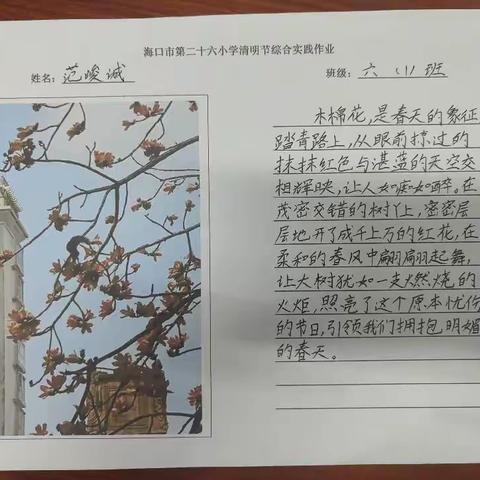 海口市第二十六小学清明节综合实践作业
姓名: 范峻诚
班级: 六（1）班
木棉花,是春天的象征
踏青路上,从眼前掠过的
抹抹红色与湛蓝的天空交
相辉映,让人如痴如醉。在
茂密交错的树丫上,密密层
层地开了成千上万的红花,在
柔和的春风中翩翩起舞,
让大树犹如一支燃烧的
火炬,照亮了这个原本忧伤
的节日,引领我们拥抱明媚
的春天。